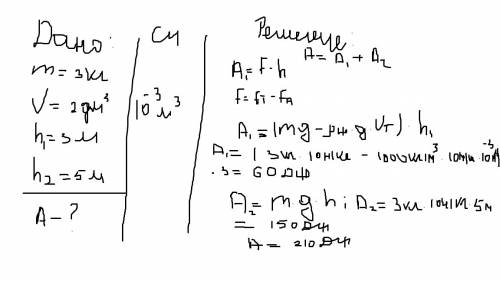 Дано:
m = 3кг
V = 2дм³
h₁ = 3м
h₂ = 5м
A – ?
СИ
10⁻³м³
Решение:
A = A₁ + A₂
A₁ = F · h
F = Fт – FА
A₁ = (mg – ρж g Vт) · h₁
A₁ = ( 3кг · 10Н/кг – 1000кг/м³ · 10Н/кг · 10⁻³
· 3 = 60Дж
A₂ = m g h; A₂ = 3кг · 10Н/кг · 5м
= 150Дж
A = 210Дж